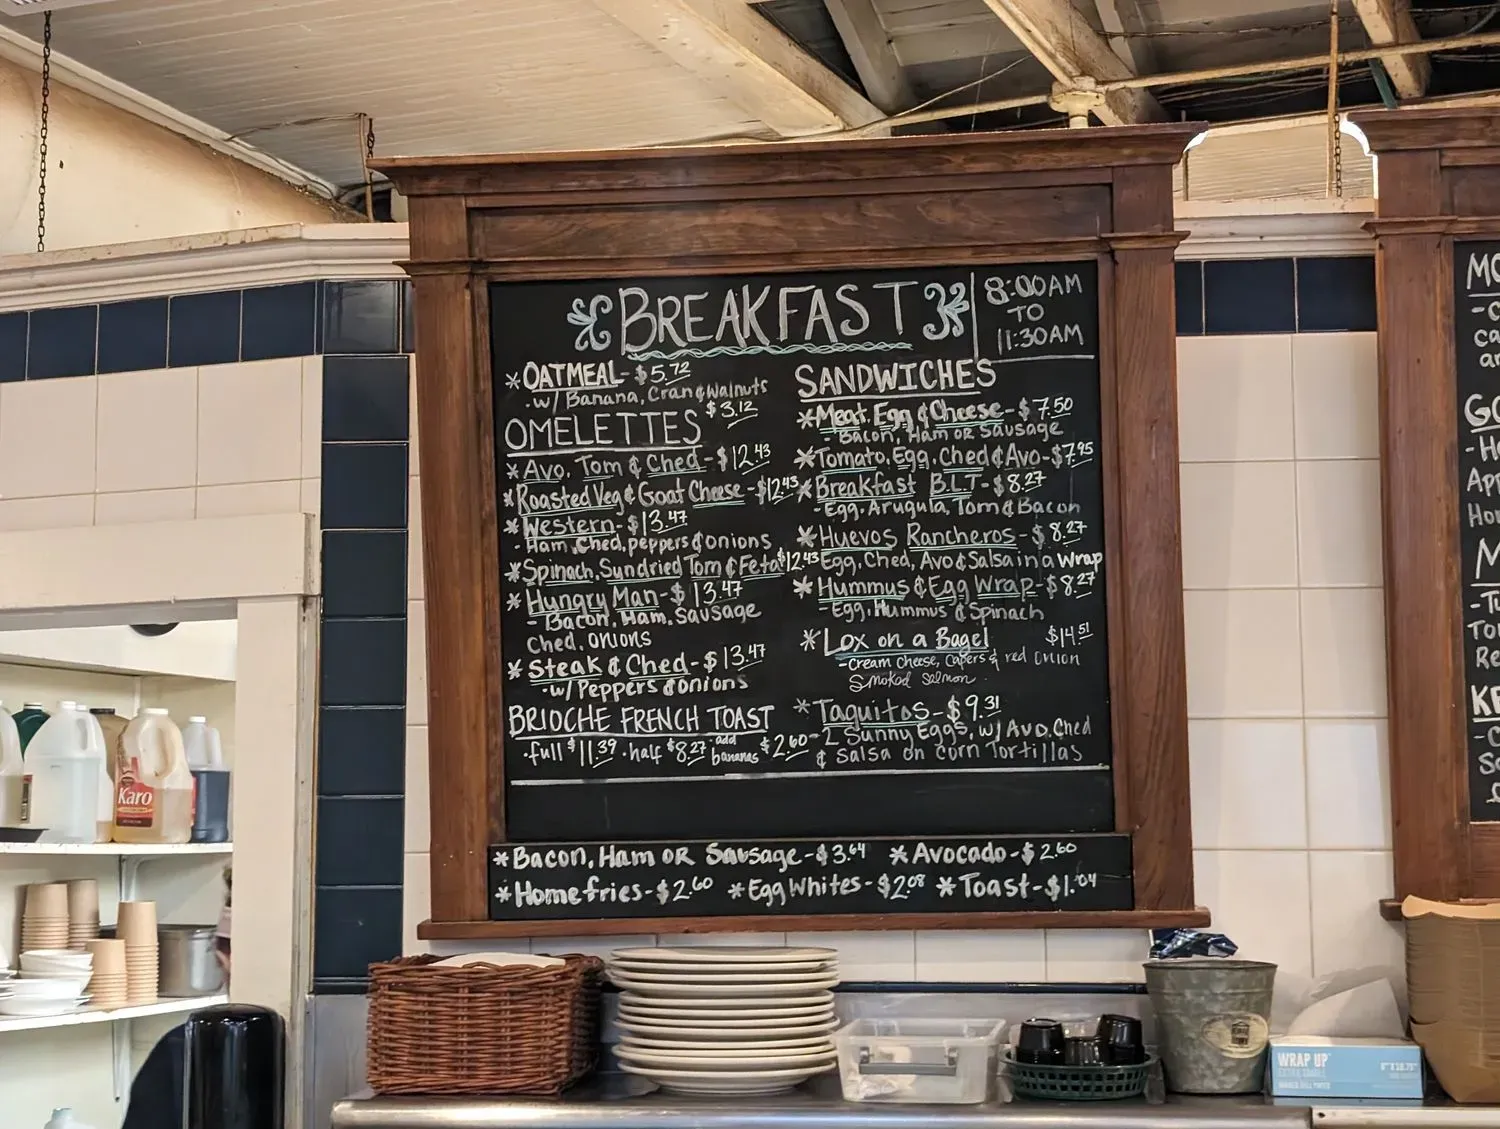 BREAKFAST
8:00AM
TO
11:30AM
* OATMEAL - $5.72
- w/ Banana, Cran & Walnuts
$3.12
OMELETTES
* Avo, Tom & Ched - $12.43
* Roasted Veg & Goat Cheese - $12.43
* Western - $13.47
- Ham, Ched, Peppers & Onions
* Spinach, Sundried Tom & Feta $12.43
* Hungry Man - $13.47
- Bacon, Ham, Sausage
Ched, Onions
* Steak & Ched - $13.47
- w/ Peppers & Onions
BRIOCHE FRENCH TOAST
· full $11.39 · half $8.27 · add bananas $2.60
SANDWICHES
* Meat, Egg & Cheese - $7.50
- Bacon, Ham OR Sausage
* Tomato, Egg, Ched & Avo - $7.95
* Breakfast B.L.T - $8.27
- Egg, Arugula, Tom & Bacon
* Huevos Rancheros - $8.27
Egg, Ched, Avo & Salsa in a Wrap
* Hummus & Egg Wrap - $8.27
- Egg, Hummus & Spinach
* Lox on a Bagel $14.51
- Cream Cheese, Capers & red Onion
Smoked Salmon
* Taquitos - $9.31
- 2 Sunny Eggs, w/ Avo, Ched
& Salsa on Corn Tortillas
* Bacon, Ham OR Sausage - $3.64 * Avocado - $2.60
* Homefries - $2.60 * Egg Whites - $2.08 * Toast - $1.04
Karo
WRAP UP